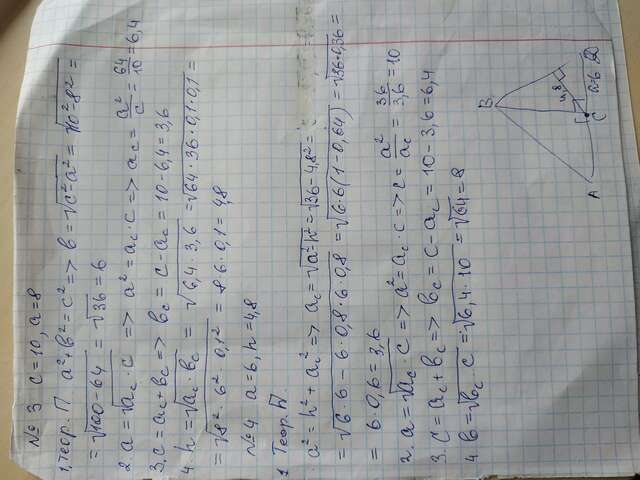 № 3 c=10, a=8
1, Теор. П. a²+b²=c² => b=√c²-a² = √10²-8² =
= √100-64 = √36 = 6
2. a=√ac·c => a²=ac·c => ac = a²/c = 64/10 = 6,4
3. c=ac+bc => bc = c-ac = 10-6,4=3,6
4. h=√ac·bc = √6,4·3,6 = √64·36·0,1·0,1 =
= √8²·6²·0,1² = 8·6·0,1 = 4,8
№4 a=6, h=4,8
1 Теор. П.
a²=h²+ac² => ac=√a²-h²=√36-4,8²=
= √6·6-6·0,8·6·0,8 = √6·6(1-0,64) = √36·0,36 =
= 6·0,6=3,6
2, a=√ac·c => a²=ac·c => c= a²/ac = 36/3,6 = 10
3. c=ac+bc => bc=c-ac=10-3,6=6,4
4. b=√bc·c = √6,4·10 = √64 = 8
B
4,8
A
C
D